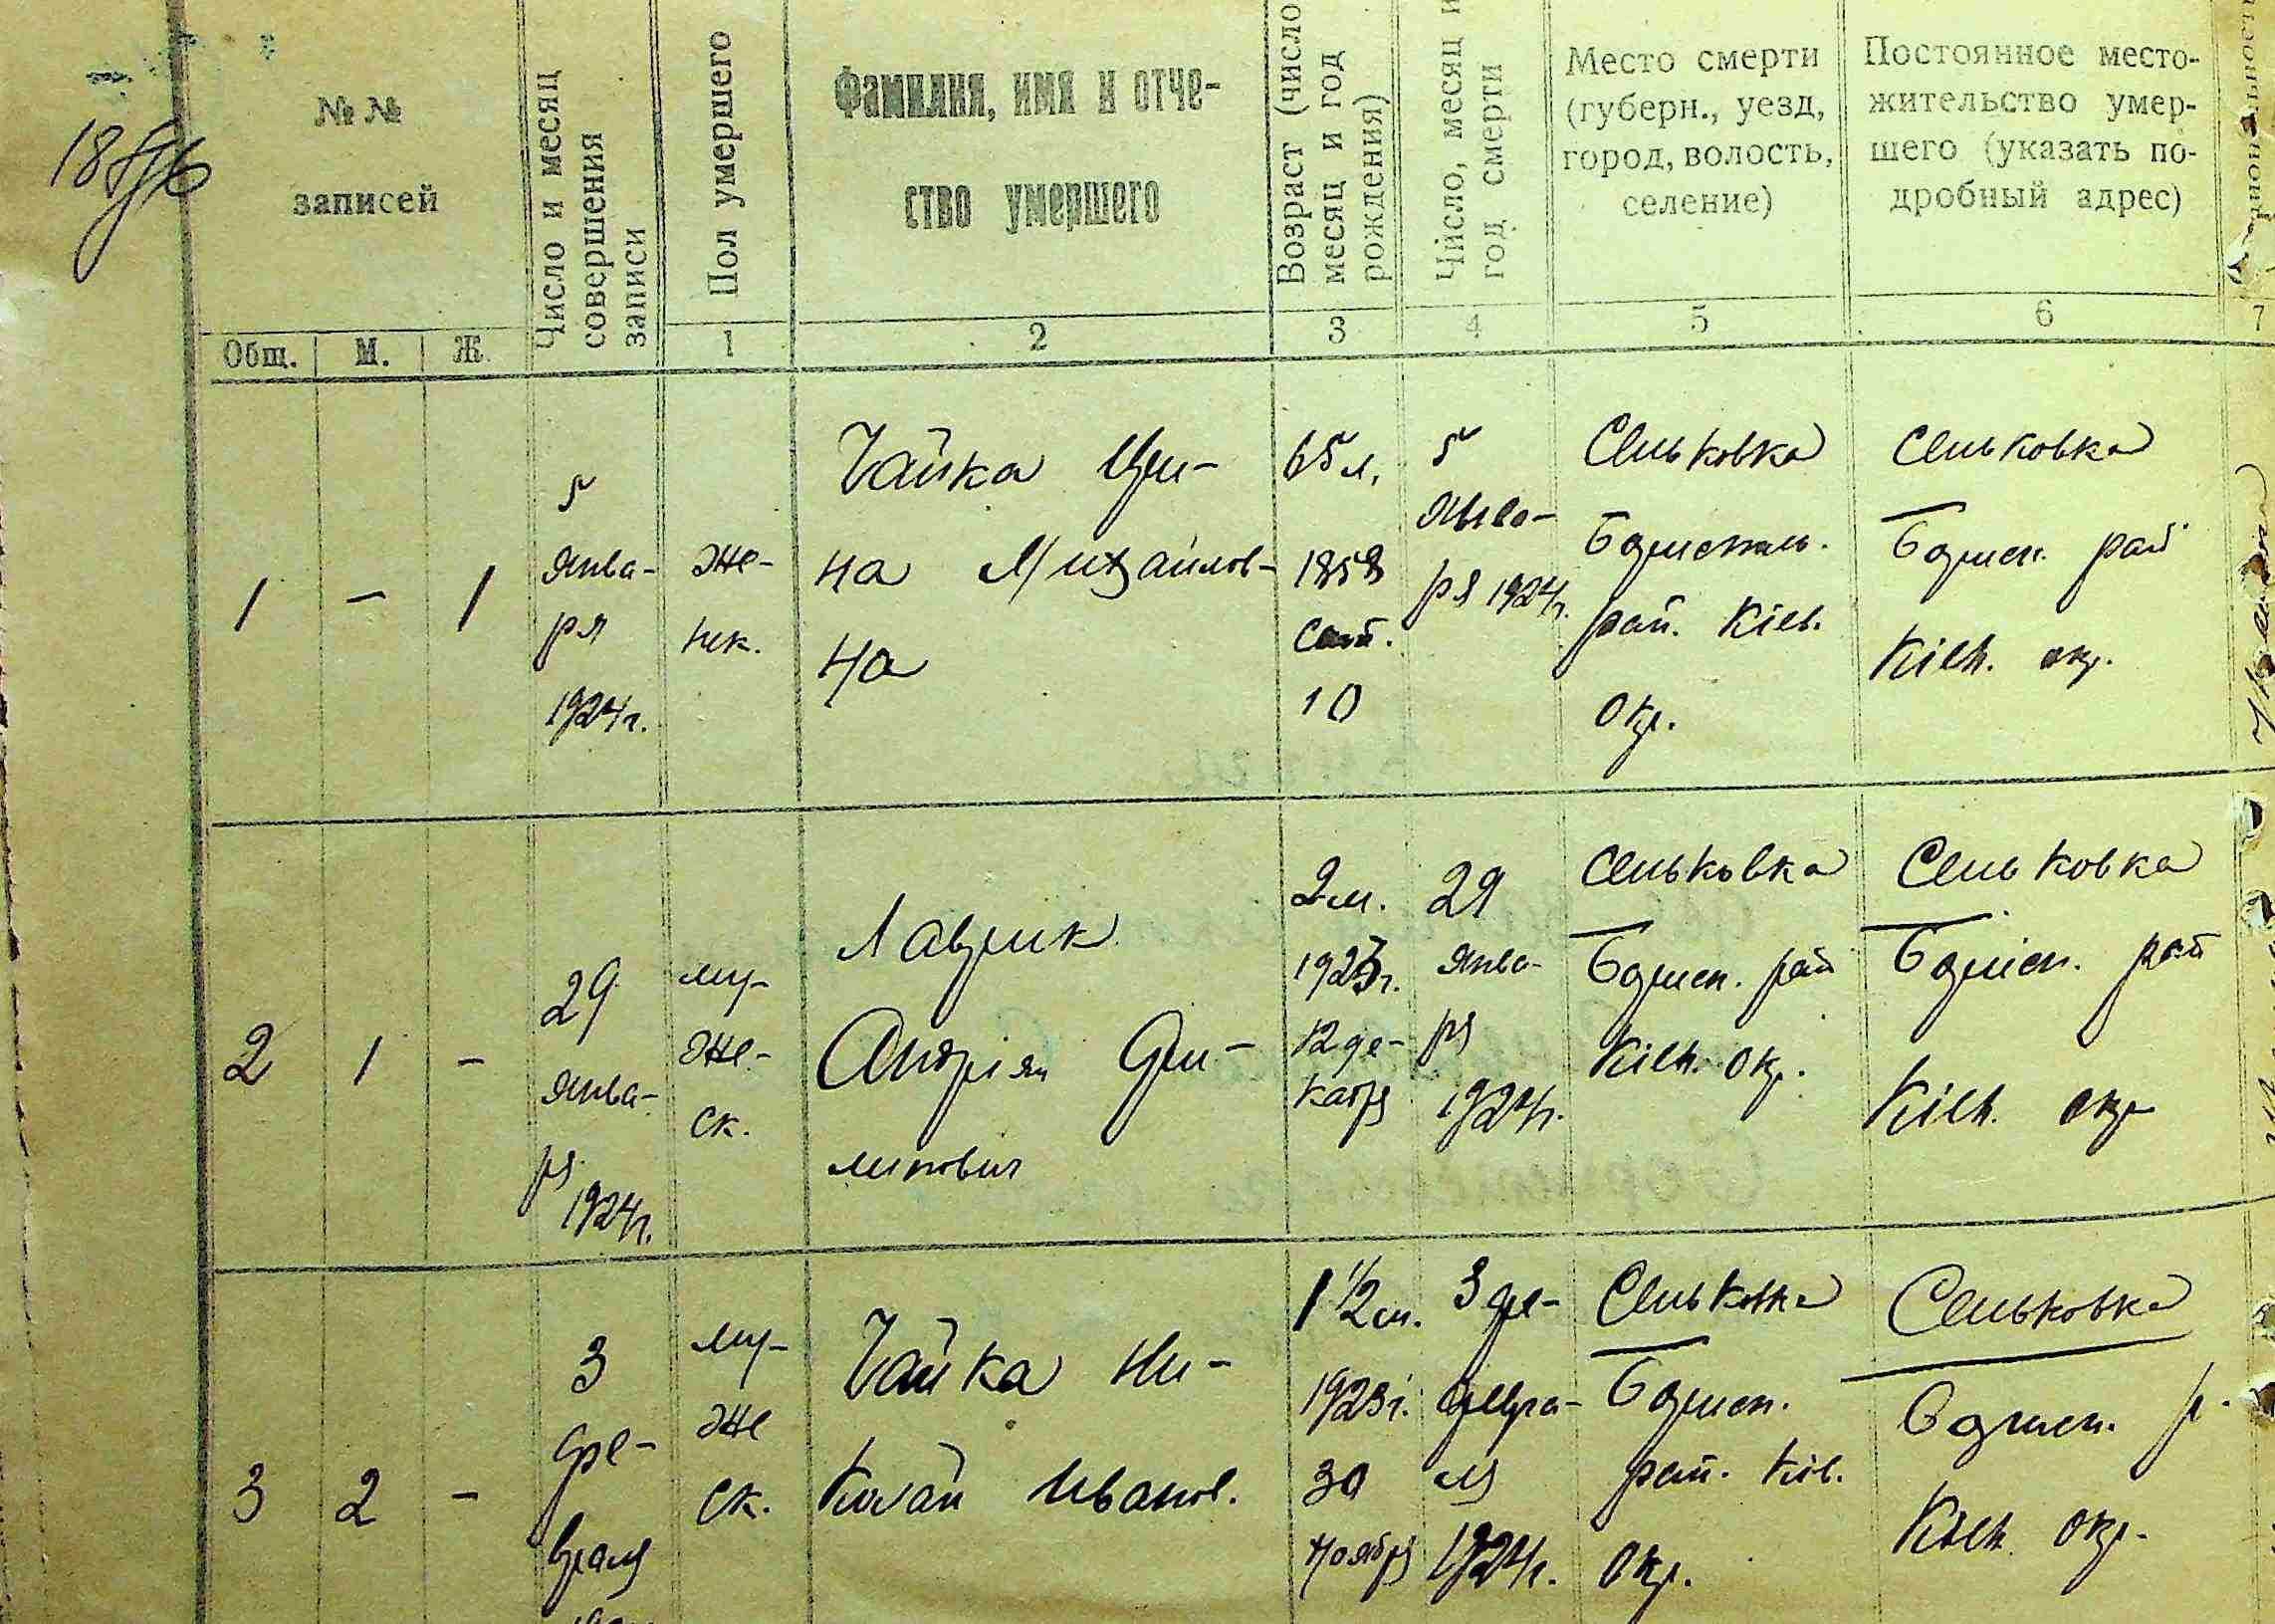 № №
записей
Число и месяц
совершения
записи
Пол умершего
Фамилия, имя и отче-
ство умершего
Возраст (число
месяц и год
рождения)
Число, месяц и
год смерти
Место смерти
(губерн., уезд,
город, волость,
селение)
Постоянное место-
жительство умер-
шего (указать по-
дробный адрес)
Общ.
М.
Ж.
1
2
3
4
5
6
7
1
–
1
5
янва-
ря
1924г.
Же-
нск.
Чайка Ири-
на Михайлов-
на
65 л.
1858
10
5
янва-
ря 1924г.
Сеньковка
Бориспиль.
рай. Кіев.
окр.
Сеньковка
Борисп. рай
Кіев. окр.
2
1
–
29
янва-
ря
1924г.
му-
же-
ск.
Лаврик
Андріян Фи-
липович
2 м.
1923г.
12 де-
кабря
29
янва-
ря
1924г.
Сеньковка
Борисп. рай
Кіев. окр.
Сеньковка
Борисп. рай
Кіев. окр
3
2
–
3
фе-
враля
му-
же
ск.
Чайка Ни-
колай Иванов.
1 1/2 м.
1923г.
30
ноября
3 фе-
ля
1924г.
Сеньковка
Борисп.
рай. Кіев.
окр.
Сеньковка
Борисп. р.
Кіев. окр.